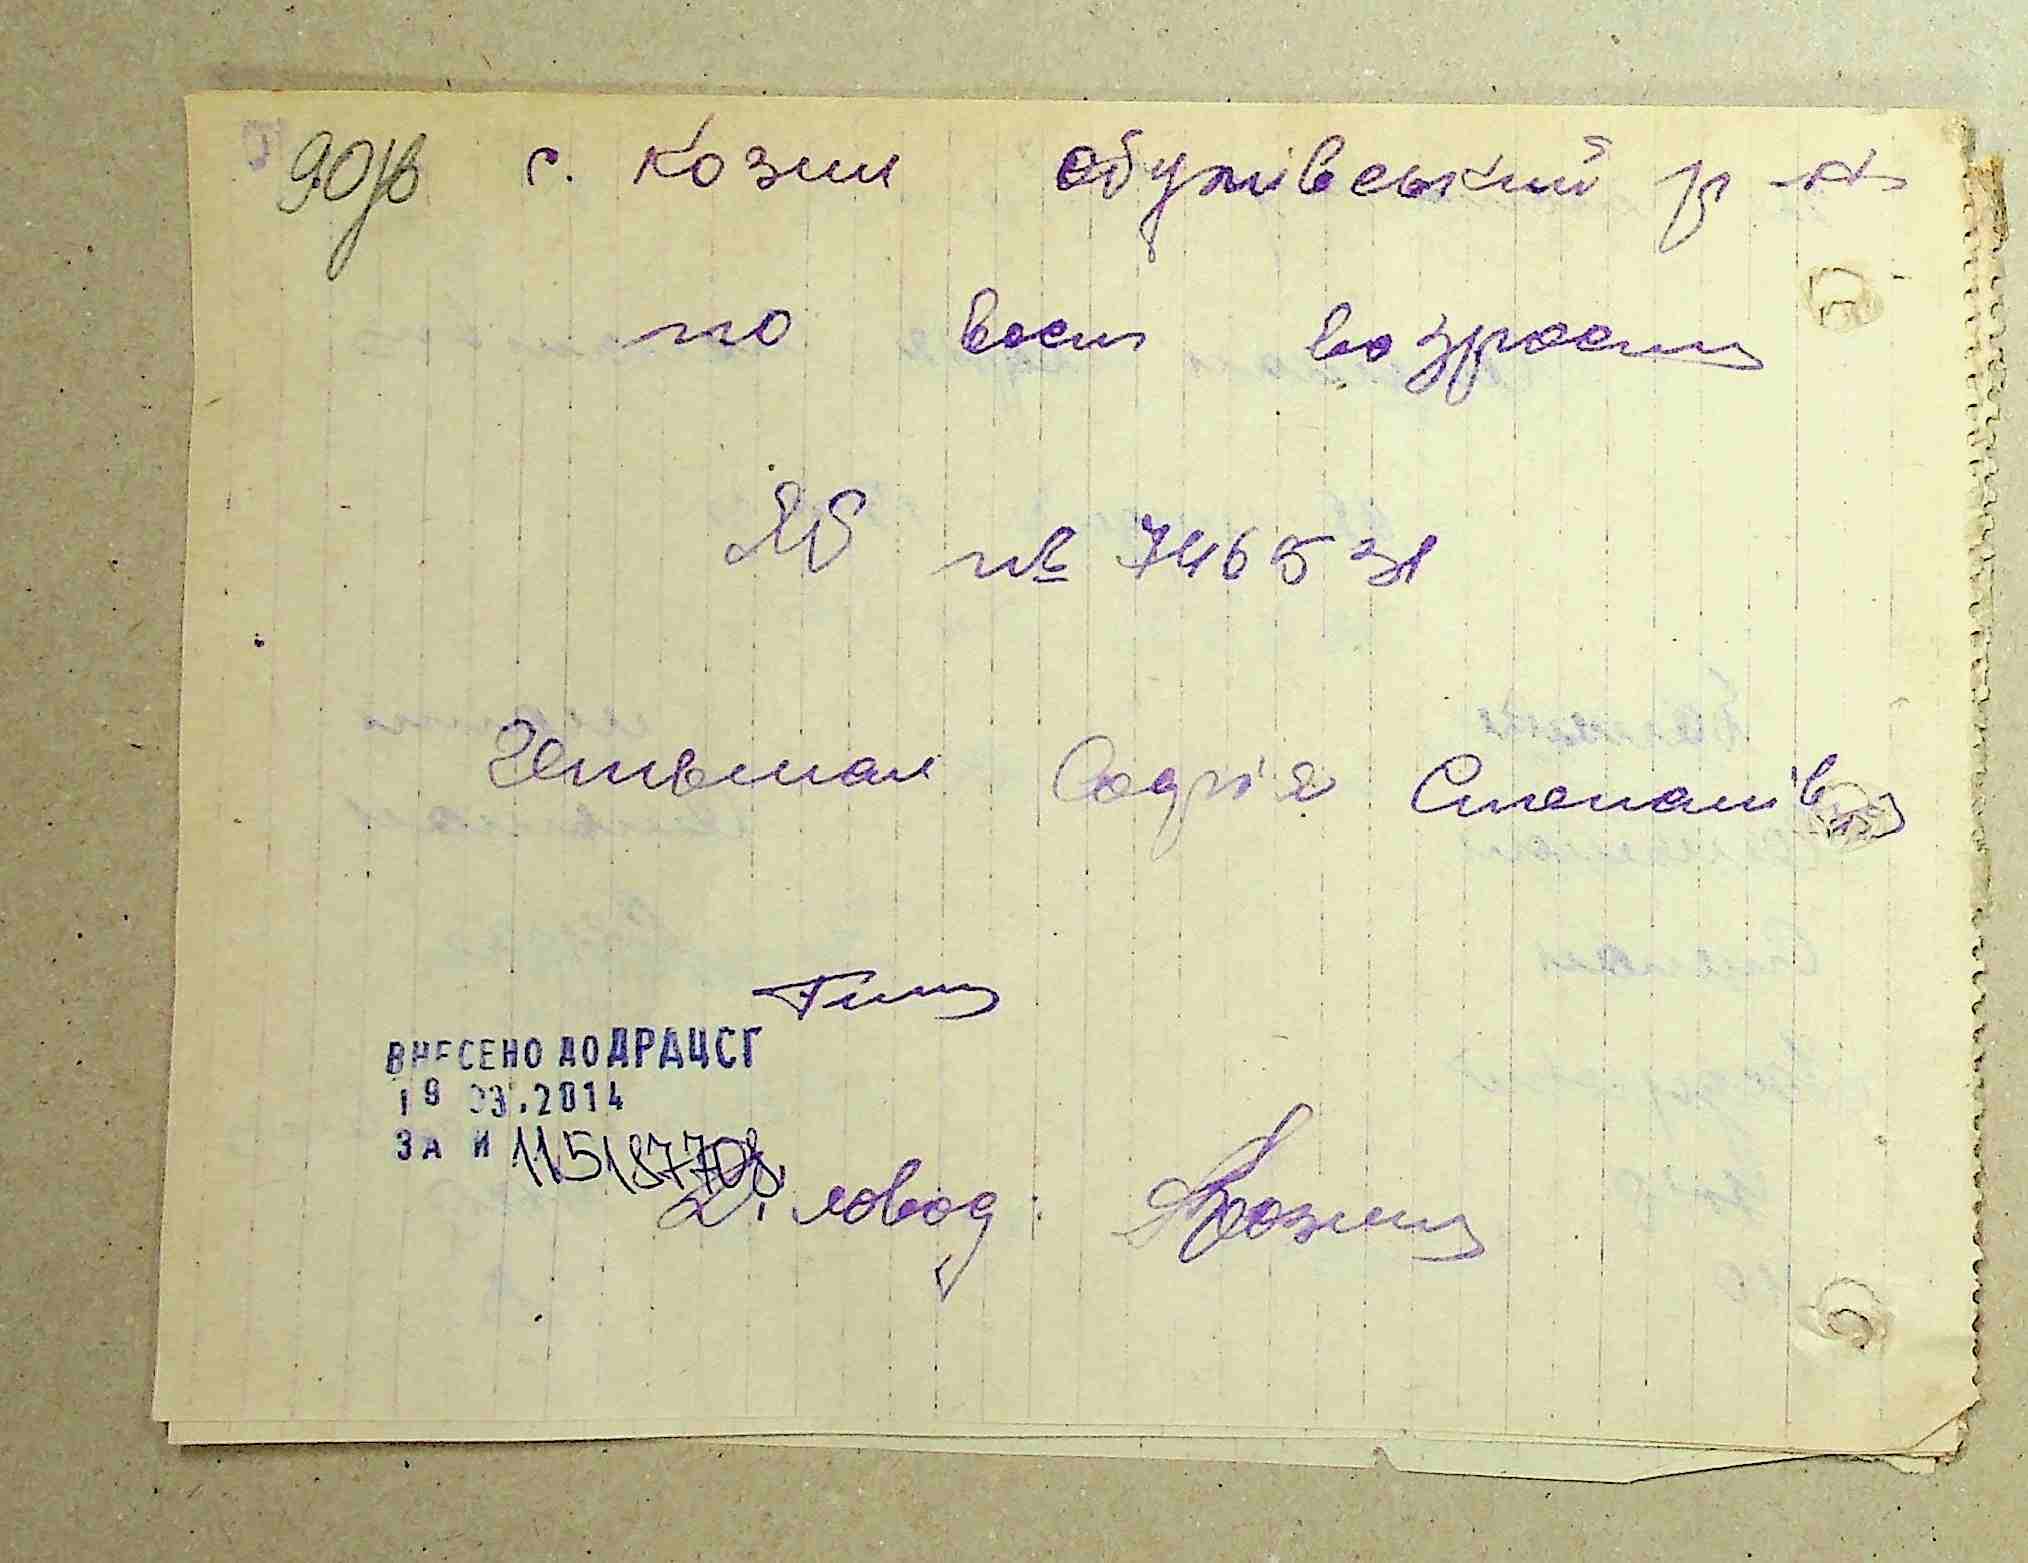 90р с. Козин Обухівський р-н
по восп возрасту
ЯБ № 746531
Гетьман Софія Степанівна
ВНЕСЕНО ДО ДРАЦСГ
19 03.2014
ЗА № 115187708
Діловод: